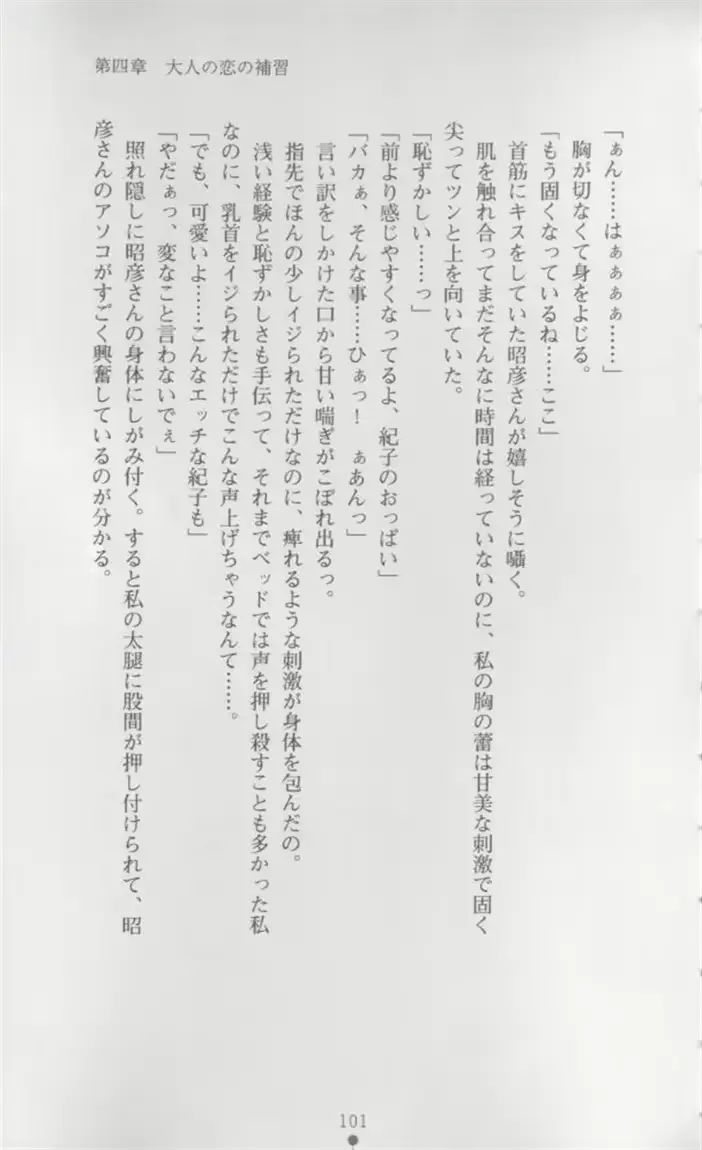 第四章 大人の恋の補習
「ぁん……はぁぁぁぁ……」
胸が切なくて身をよじる。
「もう固くなっているね……ここ」
首筋にキスをしていた昭彦さんが嬉しそうに囁く。
肌を触れ合ってまだそんなに時間は経っていないのに、私の胸の蕾は甘美な刺激で固く
尖ってツンと上を向いていた。
「恥ずかしい……っ」
「前より感じやすくなってるよ、紀子のおっぱい」
「バカぁ、そんな事……ひぁっ！ ぁあんっ」
言い訳をしかけた口から甘い喘ぎがこぼれ出るっ。
指先でほんの少しイジられただけなのに、痺れるような刺激が身体を包んだの。
浅い経験と恥ずかしさも手伝って、それまでベッドでは声を押し殺すことも多かった私
なのに、乳首をイジられただけでこんな声上げちゃうなんて……。
「でも、可愛いよ……こんなエッチな紀子も」
「やだぁっ、変なこと言わないでぇ」
照れ隠しに昭彦さんの身体にしがみ付く。すると私の太腿に股間が押し付けられて、昭
彦さんのアソコがすごく興奮しているのが分かる。
101